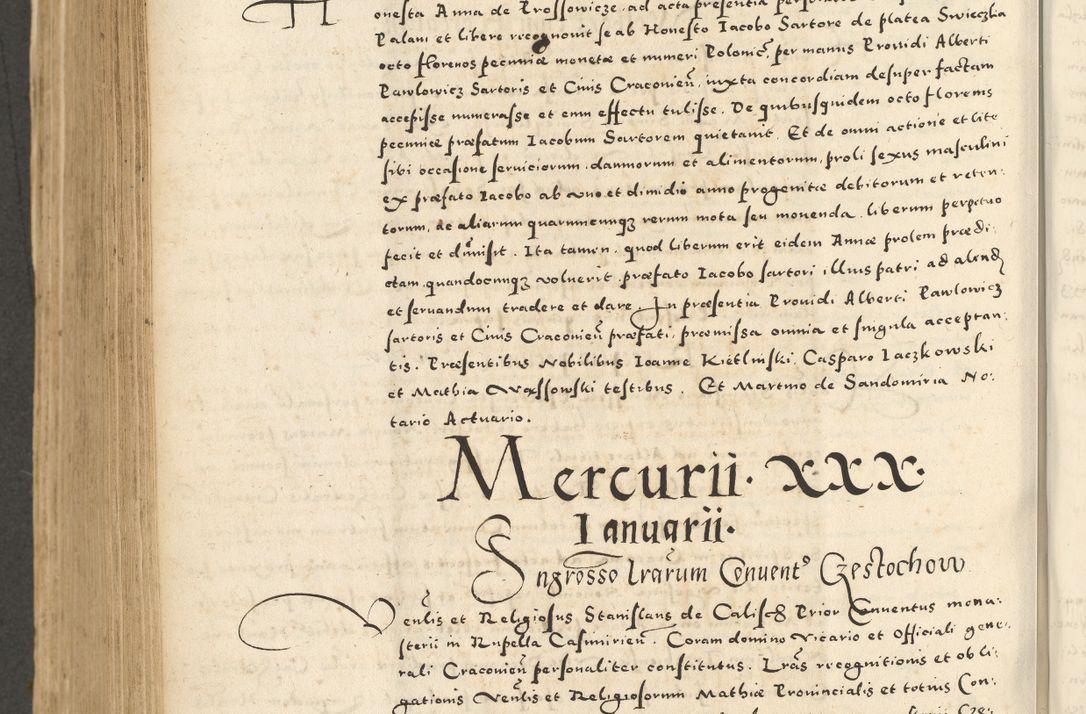 onesta Anna de Prossowicze ad acta presentia
Palam et libere recognovit se ab Honesto Iacobo Sartore de platea Swieczka
octo florenos pecuniæ monetæ et numeri Polonic, per manus Providi Alberti
Pawlowicz Sartoris et Civis Cracovien, iuxta concordiam desuper factam
accepisse numerasse et cum effectu tulisse. De quibusquidem octo florenis
pecuniæ præfatum Iacobum Sartorem quietavit. Et de omni actione et lite
sibi occasione serviciorum, damnorum et alimentorum, proli sexus masculini
ex præfato Iacobo ab uno et dimidio anno progenitæ debitorum et reten-
torum, ac aliarum quarumcunqz rerum mota seu movenda. liberum perpetuo
fecit et dimisit. Ita tamen, quod liberum erit eidem Annæ prolem prædi-
ctam, quandocunqz voluerit, præfato Iacobo sartori illius patri ad alend
et servandum tradere et dare. In præsentia Providi Alberti Pawlowicz
sartoris et Civis Cracovien præfati, præmissa omnia et singula acceptan-
tis. Præsentibus Nobilibus Ioanne Kietlinski, Casparo Iaczkowski
et Mathia Wąssowski testibus. Et Martino de Sandomiria No-
tario Actuario.
Mercurii. XXX.
Ianuarii.
Ingrosso lrarum Convent Częstochow
Venlis et Religiosus Stanislaus de Calisch Prior Conventus mona-
sterii in Rupella Casimirien. Coram domino Vicario et Officiali gene-
rali Cracovien personaliter constitutus. Lras recognitionis et obli-
gationis Venlis et Religiosorum Mathiæ Provincialis et totius Con-